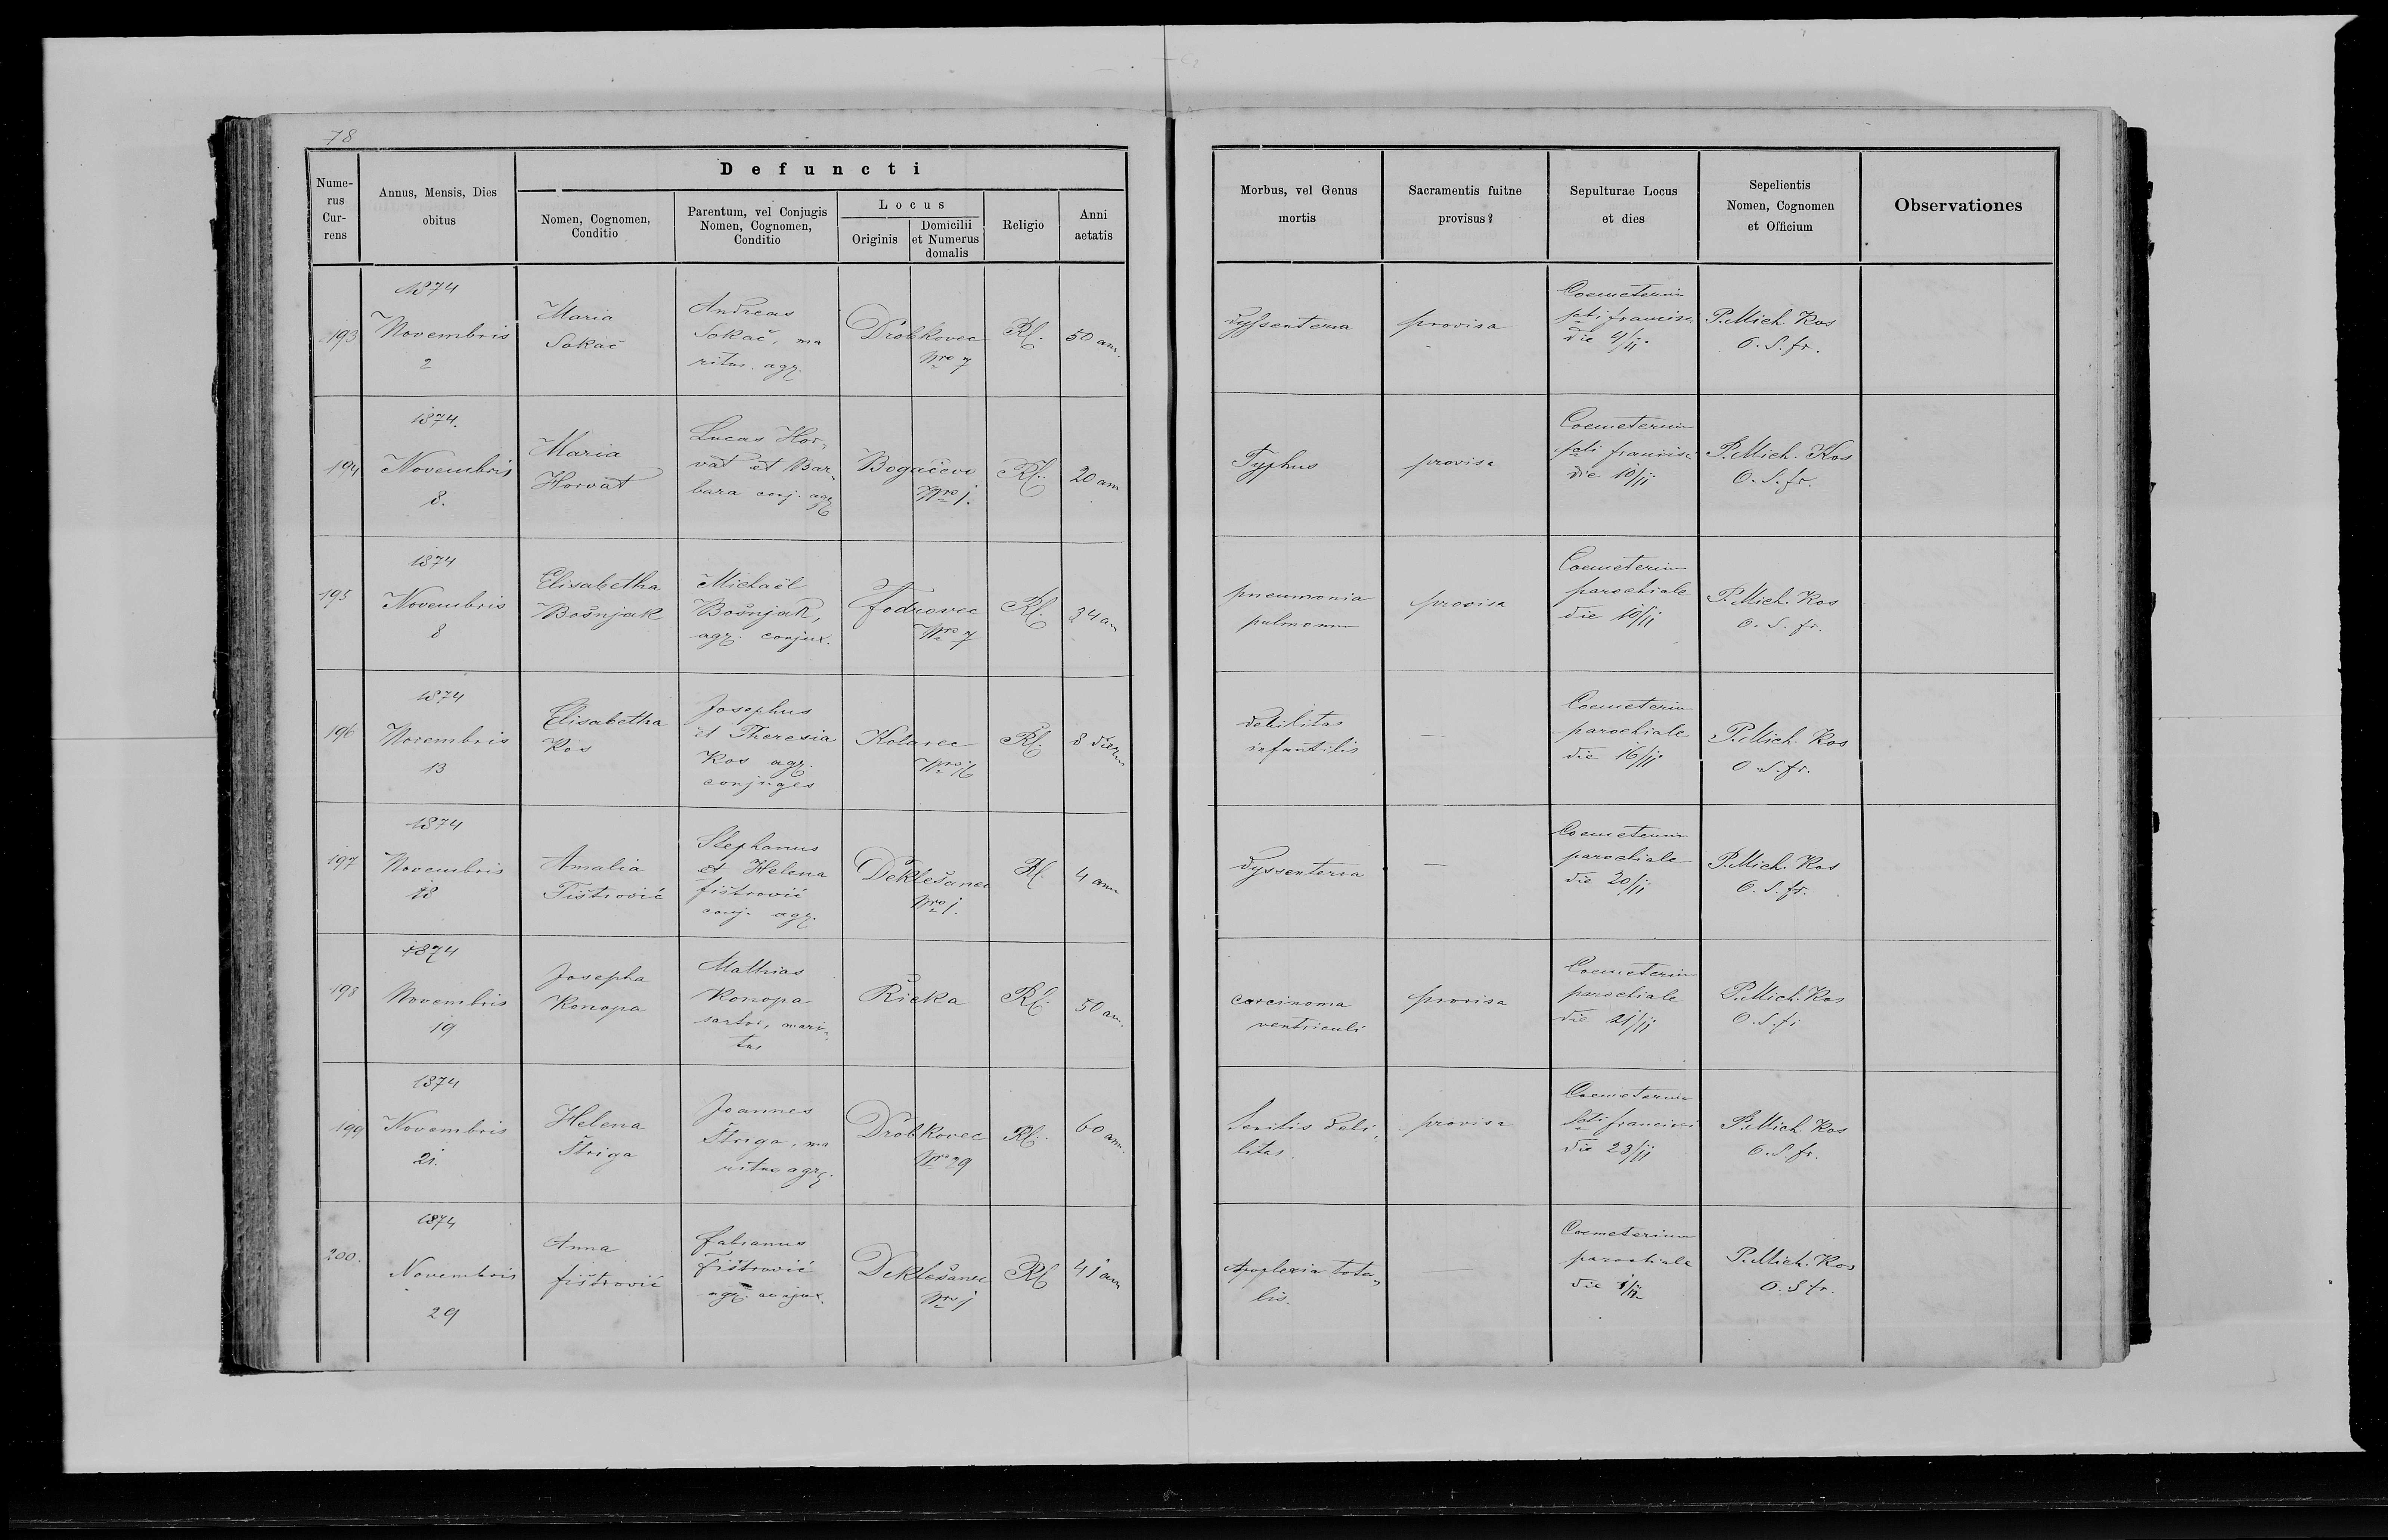 78
Defuncti
Nume-
rus
Cur-
rens
Annus, Mensis, Dies
obitus
Nomen, Cognomen,
Conditio
Parentum, vel Conjugis
Nomen, Cognomen,
Conditio
Locus
Originis
Domicilii
et Numerus
domalis
Religio
Anni
aetatis
Morbus, vel Genus
mortis
Sacramentis fuitne
provisus?
Sepulturae Locus
et dies
Sepelientis
Nomen, Cognomen
et Officium
Observationes
193
1874
Novembris
2
Maria
Sokač
Andreas
Sokač, ma
ritus. agr.
Drobkovec
Nro 7
Rl.
50 ann.
dyssenteria
provisa
Coemeterium
scti francisci
die 4/11
P. Mich. Kos
O. S. fr.
194
1874.
Novembris
8.
Maria
Horvat
Lucas Hor-
vat et Bar-
bara conj. agr.
Bogačevo
Nro 1.
Rl.
20 ann
Typhus
provisa
Coemeterium
scti francisci
die 10/11
P. Mich. Kos
O. S. fr.
195
1874
Novembris
8
Elisabetha
Bošnjak
Michaël
Bošnjak,
agr. conjux.
Fodrovec
Nro 7
Rl.
34 an
pneumonia
pulmonum
provisa
Coemeterium
parochiale
die 10/11
P. Mich. Kos
O. S. fr.
196
1874
Novembris
13
Elisabetha
Kos
Josephus
et Theresia
Kos agr.
conjuges
Kolarec
Nro 16
Rl.
8 dierum
debilitas
infantilis
—
Coemeterium
parochiale
die 16/11
P. Mich. Kos
O. S. fr.
197
1874
Novembris
18
Amalia
Fištrović
Stephanus
et Helena
fištrović
conj. agr.
Deklešanec
Nro 1.
Rl.
4 ann
dyssenteria
—
Coemeterium
parochiale
die 20/11
P. Mich. Kos
O. S. fr.
198
1874
Novembris
19
Josepha
Konopa
Mathias
Konopa
sartor, mari-
tus
Rieka
Rl.
50 an.
carcinoma
ventriculi
provisa
Coemeterium
parochiale
die 21/11
P. Mich. Kos
O. S. fr
199
1874
Novembris
21.
Helena
Štriga
Joannes
Štriga, ma
ritus agr.
Drobkovec
Nro 29
Rl.
60 ann.
Senilis debi-
litas.
provisa
Coemeterium
Scti francisci
die 23/11
P. Mich. Kos
O. S. fr.
200.
1874
Novembris
29
Anna
fištrović
fabianus
Fištrović
agr. conjux.
Deklešanec
Nro 1
Rl
41 ann
Apoplexia tota-
lis.
—
Coemeterium
parochiale
die 1/12
P. Mich. Kos
O. S fr.